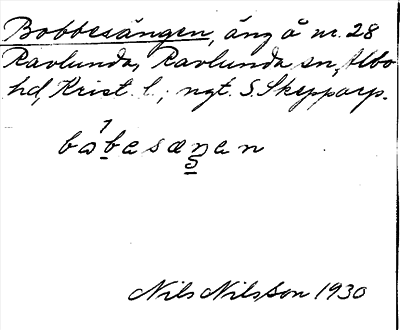 Bobbesängen, äng å nr. 28
Ravlunda, Ravlunda sn, Albo
hd, Krist. l.; ngt. S Skepparp.
babesæŋen
Nils Nilsson 1930